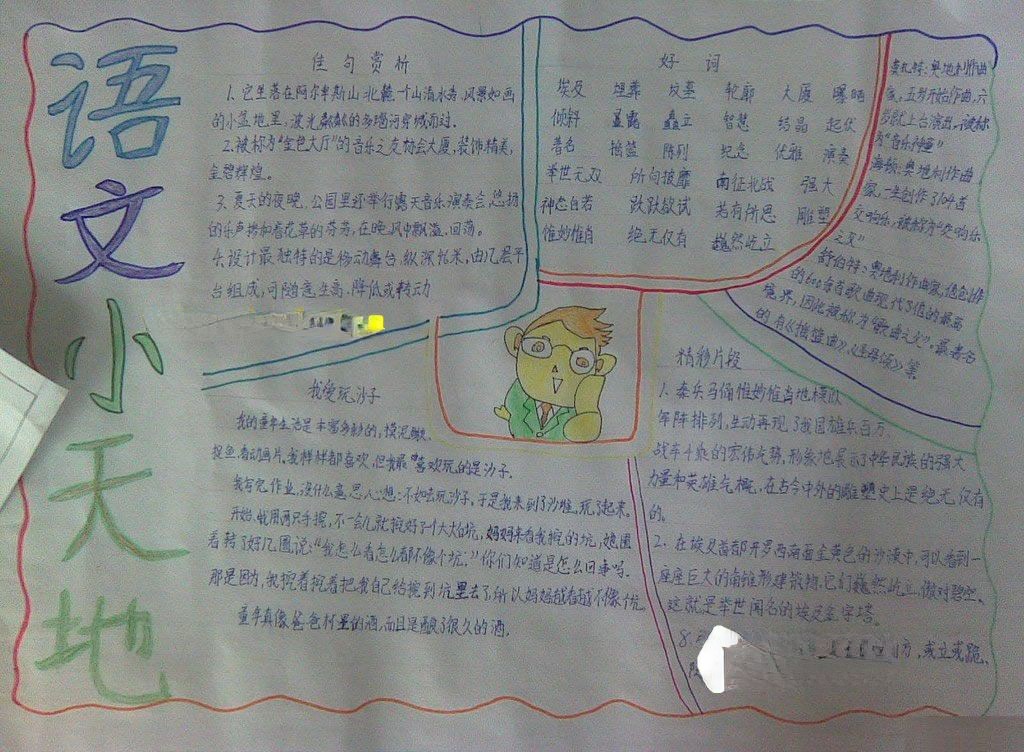 语文小天地
佳句赏析
1、它坐落在阿尔卑斯山北麓一个山清水秀、风景如画
的小盆地里,波光粼粼的多瑙河穿城而过。
2、被称为"金色大厅"的音乐之友协会大厦,装饰精美,
金碧辉煌。
3、夏天的夜晚,公园里还举行露天音乐演奏会,悠扬
的乐声掺和着花草的芬芳,在晚风中飘溢、回荡。
4、设计最独特的是移动舞台,纵深米,由几层平
台组成,可随意升高、降低或转动
好词
埃及 坦葬 坟墓 轮廓 大厦 曝晒
倾斜 矗立 智慧 结晶 起伏
著名 摇篮 陈列 纪念 优雅 演奏
举世无双 所向披靡 南征北战 强大
神态自若 跃跃欲试 若有所思 雕塑
惟妙惟肖 绝无仅有 巍然屹立
莫扎特:奥地利作曲
家,五岁开始作曲,六
岁就上台演出,被称
为"音乐神童"
海顿:奥地利作曲
家,一生创作了104首
交响乐,被称为"交响乐
之父"
舒伯特:奥地利作曲家,他创作
的600余首歌曲现代了他的最高
境界,因此被称为"歌曲之父",最著名
的有《摇篮曲》、《圣母颂》等
我爱玩沙子
我的童年生活是丰富多彩的,摸泥鳅、
捉鱼、看动画片,我样样都喜欢,但我最喜欢玩的是沙子。
我写完作业,没什么意思,心想:不如去玩沙子,于是我来到了沙堆,玩了起来。
开始,我用两只手挖,不一会儿就挖好了一个大大的坑,妈妈来看我挖的坑,她围
着转了好几圈说:"我怎么看怎么都不像个坑。"你们知道是怎么回事吗。
那是因为,我挖着挖着把我自己给挖到坑里去了,所以妈妈越看越不像个坑。
童年真像爸爸杯里的酒,而且是酿了很久的酒。
精彩片段
1、秦兵马俑惟妙惟肖地模仿
军阵排列,生动再现了我国雄兵百万、
战车千乘的宏伟气势,形象地展示了中华民族的强大
力量和英雄气概,在古今中外的雕塑史上是绝无仅有
的。
2、在埃及首都开罗西南面金黄色的沙漠中,可以看到一
座座巨大的角锥形建筑物。它们巍然屹立,傲对碧空、
这就是举世闻名的埃及金字塔。
方,或立或跪、